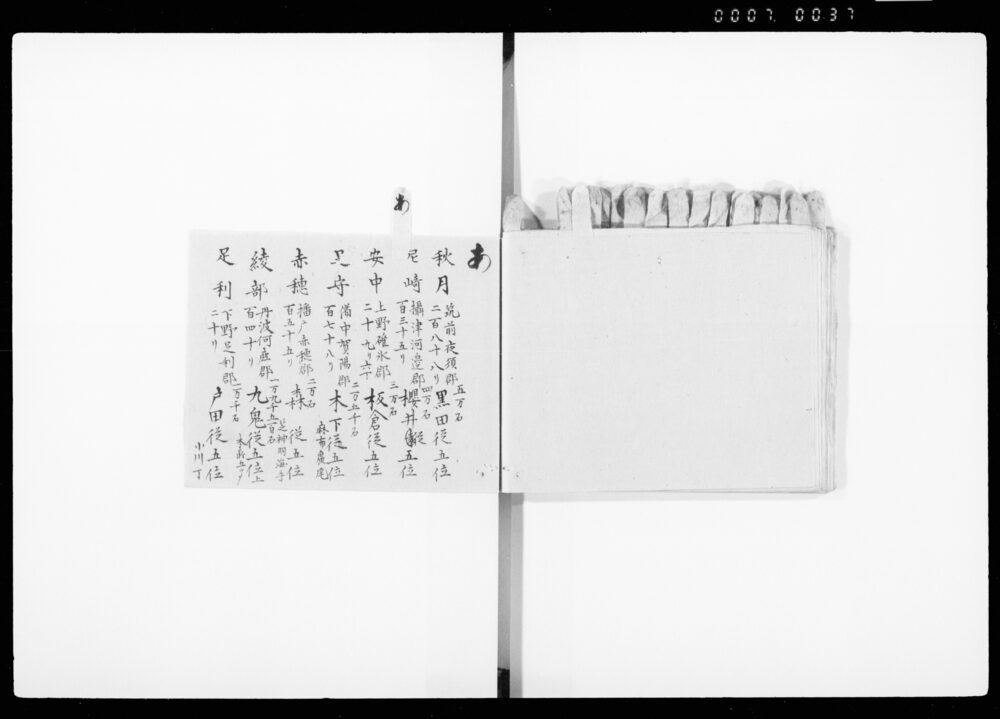 0007 0037
あ
あ
秋月 筑前夜須郡 五万石 黒田従五位
二百八十八り
尼崎 摂津河邉郡 四万石 櫻井従五位
百三十五り
安中 上野碓氷郡 三万石 板倉従五位
二十九り六丁
足守 備中賀陽郡 二万五千石 木下従五位
百七十八り 麻布廣尾
赤穂 播戸赤穂郡 二万石 森従五位
百五十五り 芝神明海手
綾部 丹波何鹿郡 一万九千五百石 九鬼従五位上
百四十り
足利 下野足利郡 一万千石 戸田従五位
二十り 小川丁